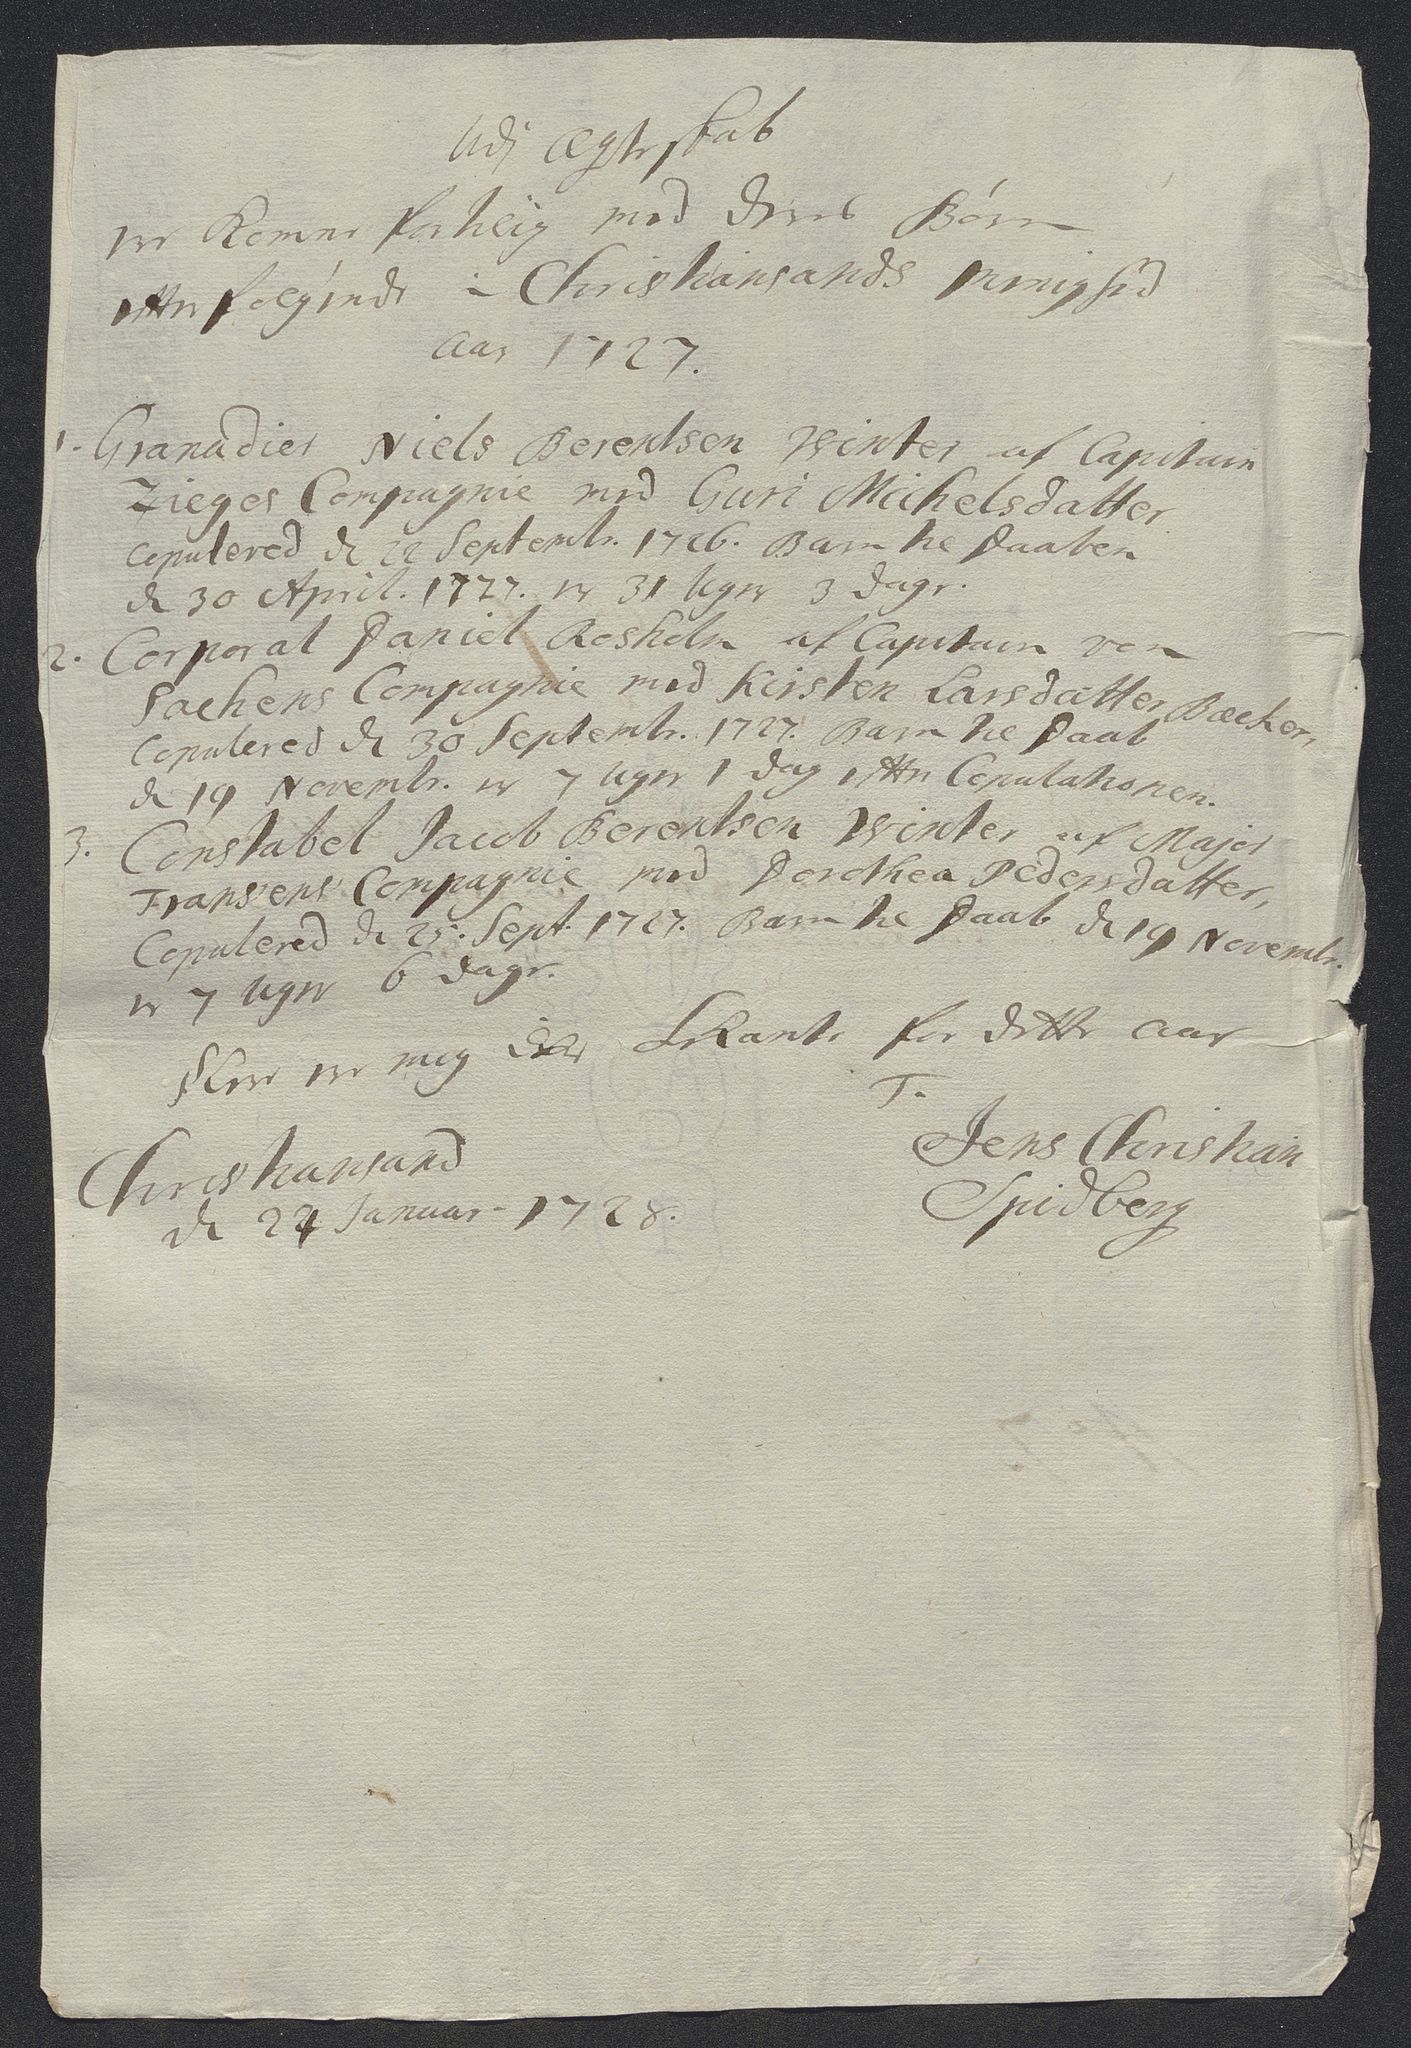 Udj Ægteskab
ere Komne for tlig med deres Børn
efterfølgende i Christiansands menighed
Aar 1727.
1. Granadier Niels Berentsen Winter af Capitain
Zieges Compagnie med Guri Michelsdatter
Copulered de 22 Septembr. 1726. Barn te Daaben
de 30 April. 1727. er 31 Uger 3 dage.
2. Corporal Daniel Rosholm af Capitain von
Sachens Compagnie med Kirsten Larsdatter Bæcker,
Copulered de 30 Septembr. 1727. Barn te Daab
de 19 Novembr. er 7 Uger 1 dag efter Copulationen.
3. Constabel Jacob Berentsen Winter af Major
Fransens Compagnie med Dorothea Pedersdatter,
Copulered de 25. Sept. 1727. Barn te Daab de 19 Novembr.
er 7 Uger 6 dage.
Flere ere mig icke bekante for dette Aar
T.
Jens Christian
Spidberg
Christiansand
de 24 Januar 1728.